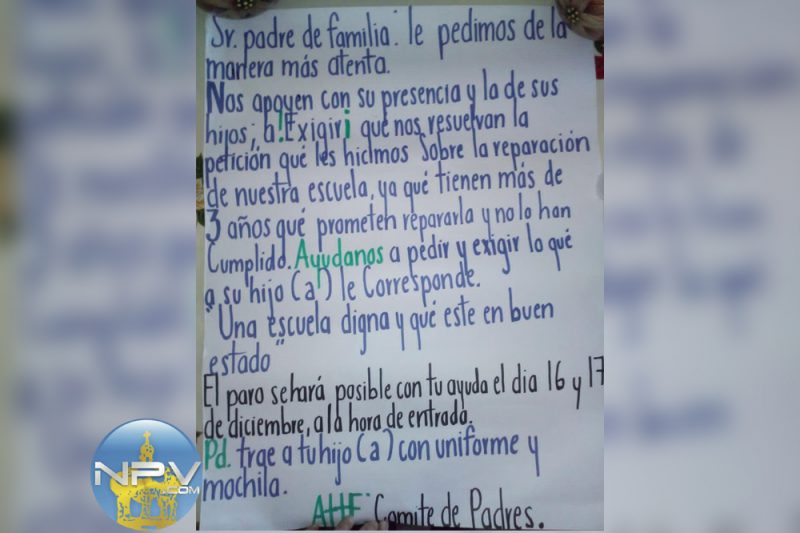 Sr. padre de familia: le pedimos de la
manera más atenta.
Nos apoyen con su presencia y la de sus
hijos, a ¡Exigir¡ qué nos resuelvan la
petición qué les hicimos sobre la reparación
de nuestra escuela, ya qué tienen más de
3 años qué prometen repararla y no lo han
Cumplido. Ayudanos a pedir y exigir lo qué
a su hijo (a) le Corresponde.
"Una escuela digna y qué este en buen
estado"
El paro sehará posible con tu ayuda el dia 16 y 17
de diciembre, a la hora de entrada.
Pd. trae a tu hijo (a) con uniforme y
mochila.
ATTE: Comite de Padres.
NPV
.COM